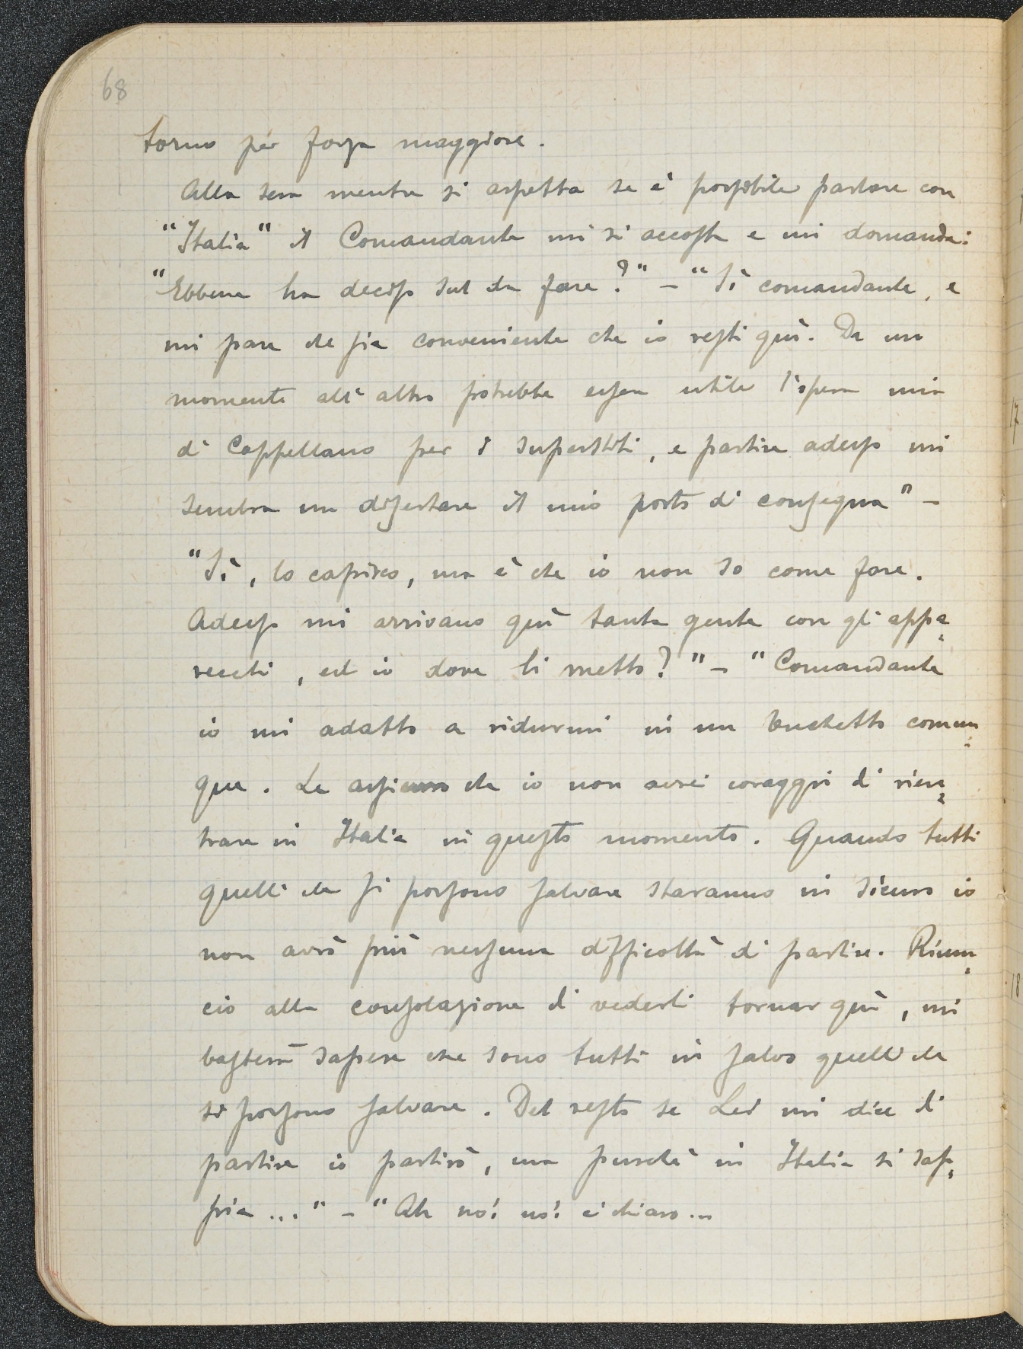 68
torno per forza maggiore.
Alla sera mentre si aspetta se è possibile parlare con
"Italia" il Comandante mi si accosta e mi domanda:
"Ebbene ha deciso sul da fare?" – "Sì comandante, e
mi pare che sia conveniente che io resti quì. Da un
momento all'altro potrebbe essere utile l'opera mia
di Cappellano per i superstiti, e partire adesso mi
sembra un disertare il mio posto di consegna" –
"Sì, lo capisco, ma è che io non so come fare.
Adesso mi arrivano quì tanta gente con gli appa=
recchi, ed io dove li metto?" – "Comandante
io mi adatto a ridurmi in un buchetto comun=
que. Le assicuro che io non avrei coraggio di rien=
trare in Italia in questo momento. Quando tutti
quelli che si possono salvare staranno in sicuro io
non avrò più nessuna difficoltà di partire. Rinun=
cio alla consolazione di vederli tornar quì, mi
basterà sapere che sono tutti in salvo quelli che
si possono salvare. Del resto se Lei mi dice di
partire io partirò, ma purchè in Italia si sap=
pia ..." – "Ah no! no! è chiaro ...